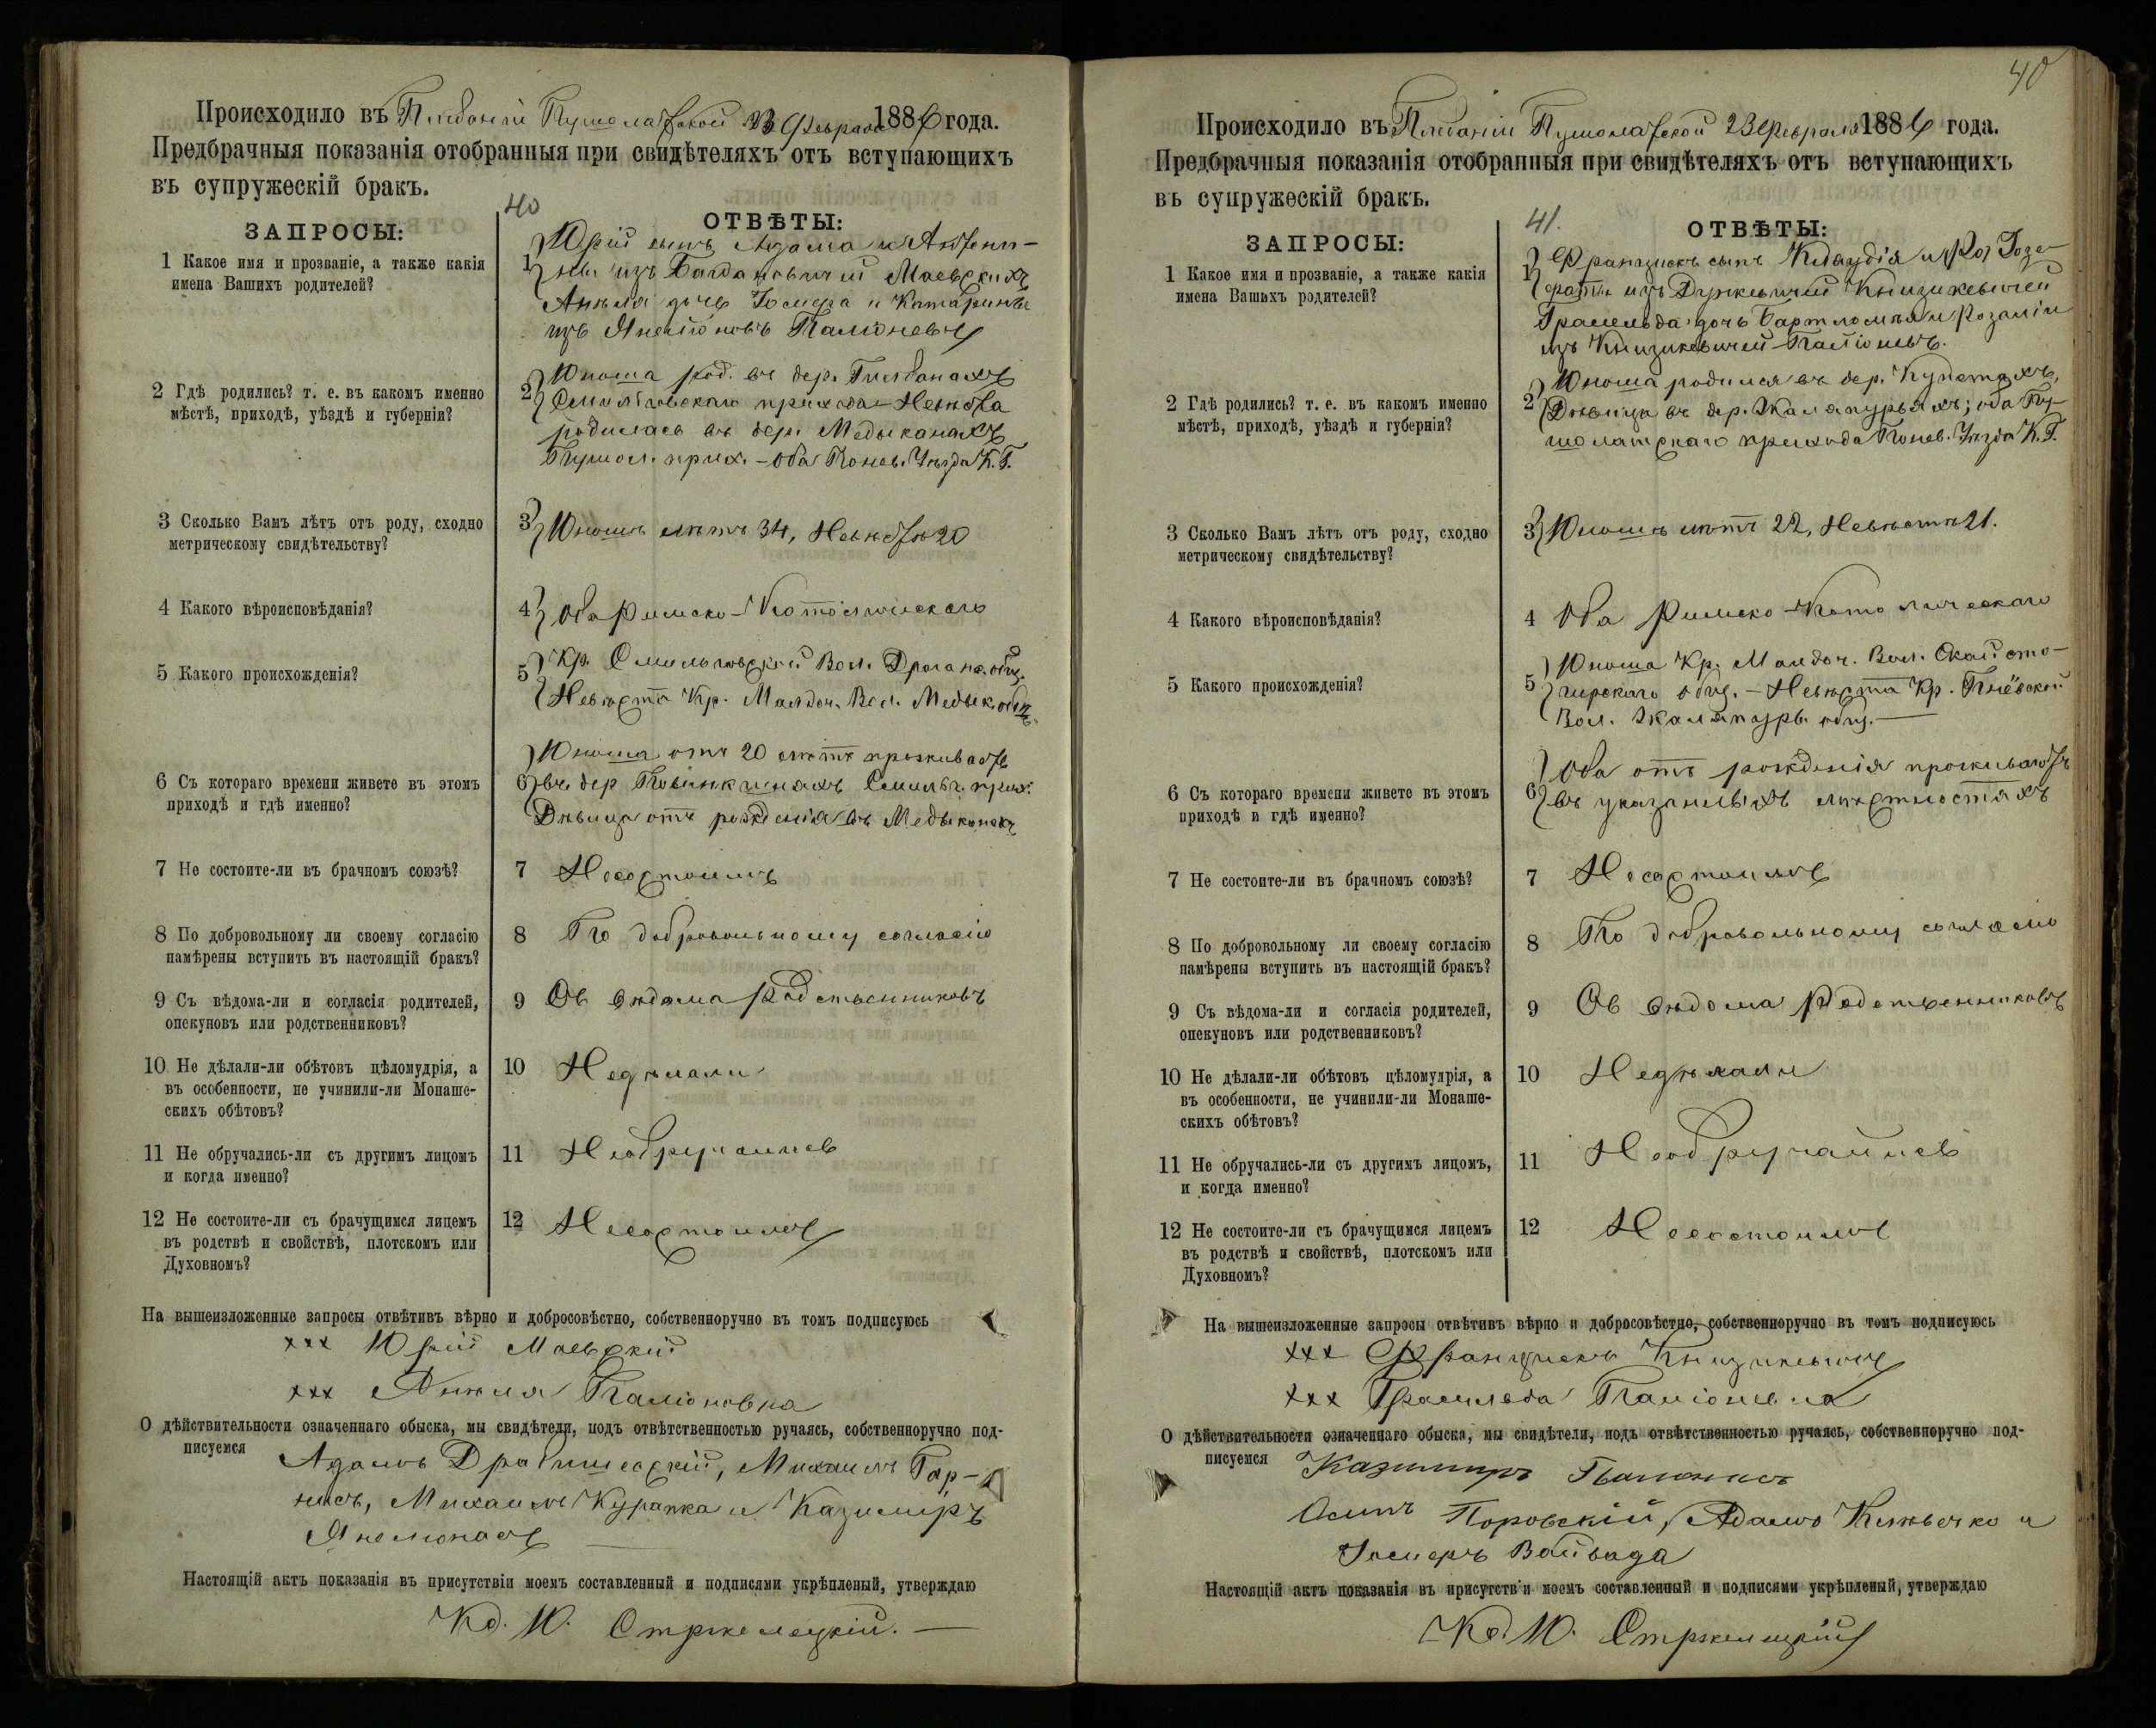 Происходило въ Плебаніи Пушолатской 23 Февраля 1886 года.
Предбрачныя показанія отобранныя при свидѣтеляхъ отъ вступающихъ
въ супружескій бракъ.
40
ЗАПРОСЫ:
ОТВѢТЫ:
1 Какое имя и прозваніе, а также какія
имена Вашихъ родителей?
1 Юрій сынъ Адама и Антони-
ны изъ Багдановичей Маевскихъ
Анеля дочь Іосифа и Катарины
изъ
2 Гдѣ родились? т. е. въ какомъ именно
мѣстѣ, приходѣ, уѣздѣ и губерніи?
2 Юноша род. въ дер.
Смильговскаго прихода – Невѣста
родилась въ дер. Медыканахъ
Пушол. прих. – Оба Понев. Уѣзда К. Г.
3 Сколько Вамъ лѣтъ отъ роду, сходно
метрическому свидѣтельству?
3 Юношѣ лѣтъ 34, Невѣстѣ 20
4 Какого вѣроисповѣданія?
4 Оба Римско-Католическаго
5 Какого происхожденія?
5 Кр. Смильговской Вол. Драган. общ.
Невѣста Кр. Малдоч. Вол. Медык. общ.
6 Съ котораго времени живете въ этомъ
приходѣ и гдѣ именно?
6 Юноша отъ 20 лѣтъ проживаетъ
въ дер Смильг. прих.
Дѣвица отъ рожденія въ Медыканахъ
7 Не состоите-ли въ брачномъ союзѣ?
7 Несостоимъ
8 По добровольному ли своему согласію
намѣрены вступить въ настоящій бракъ?
8 По добровольному согласію
9 Съ вѣдома-ли и согласія родителей,
опекуновъ или родственниковъ?
9 Съ вѣдома Родственниковъ
10 Не дѣлали-ли обѣтовъ цѣломудрія, а
въ особенности, не учинили-ли Монаше-
скихъ обѣтовъ?
10 Недѣлали
11 Не обручались-ли съ другимъ лицомъ
и когда именно?
11 Необручались
12 Не состоите-ли съ брачущимся лицемъ
въ родствѣ и свойствѣ, плотскомъ или
Духовномъ?
12 Несостоимъ
На вышеизложенные запросы отвѣтивъ вѣрно и добросовѣстно, собственноручно въ томъ подписуюсь
ххх Юрій Маевскій
ххх Анеля Паліоновна
О дѣйствительности означеннаго обыска, мы свидѣтели, подъ отвѣтственностью ручаясь, собственноручно под-
писуемся
Адамъ Михаилъ Гар-
нисъ, Михаилъ Курапка и Казимиръ
Настоящій актъ показанія въ присутствіи моемъ составленный и подписями укрѣпленый, утверждаю
Кс. Ю. Стржелецкій. –
40
Происходило въ Плебаніи Пушолатской 23 Февраля 1886 года.
Предбрачныя показанія отобранныя при свидѣтеляхъ отъ вступающихъ
въ супружескій бракъ.
41.
ЗАПРОСЫ:
ОТВѢТЫ:
1 Какое имя и прозваніе, а также какія
имена Вашихъ родителей?
1 Францискъ сынъ Клавдія и Іозе-
фаты изъ Книзикевичей
Грасильда дочь Бартломѣя и Розаліи
изъ Книзикевичей
2 Гдѣ родились? т. е. въ какомъ именно
мѣстѣ, приходѣ, уѣздѣ и губерніи?
2 Юноша родился въ дер.
Дѣвица въ дер. оба Пу-
шолатскаго прихода Понев. Уѣзда К. Г.
3 Сколько Вамъ лѣтъ отъ роду, сходно
метрическому свидѣтельству?
3 Юношѣ лѣтъ 22, Невѣстѣ 21.
4 Какого вѣроисповѣданія?
4 Оба Римско-Католическаго
5 Какого происхожденія?
5 Юноша Кр. Малдоч. Вол.
общ. – Невѣста Кр.
Вол. общ. –
6 Съ котораго времени живете въ этомъ
приходѣ и гдѣ именно?
6 Оба отъ рожденія проживаютъ
въ указанныхъ мѣстностяхъ
7 Не состоите-ли въ брачномъ союзѣ?
7 Несостоимъ
8 По добровольному ли своему согласію
намѣрены вступить въ настоящій бракъ?
8 По добровольному согласію
9 Съ вѣдома-ли и согласія родителей,
опекуновъ или родственниковъ?
9 Съ вѣдома Родственниковъ
10 Не дѣлали-ли обѣтовъ цѣломудрія, а
въ особенности, не учинили-ли Монаше-
скихъ обѣтовъ?
10 Недѣлали
11 Не обручались-ли съ другимъ лицомъ,
и когда именно?
11 Необручались
12 Не состоите-ли съ брачущимся лицемъ
въ родствѣ и свойствѣ, плотскомъ или
Духовномъ?
12 Несостоимъ
На вышеизложенные запросы отвѣтивъ вѣрно и добросовѣстно, собственноручно въ томъ подписуюсь
ххх Францискъ Книзикевичъ
ххх Грасильда
О дѣйствительности означеннаго обыска, мы свидѣтели, подъ отвѣтственностью ручаясь, собственноручно под-
писуемся
Казимиръ
Осипъ Поровскій, Адамъ и
Іосифъ Войвада
Настоящій актъ показанія въ присутствіи моемъ составленный и подписями укрѣпленый, утверждаю
Кс. Ю. Стржелецкій